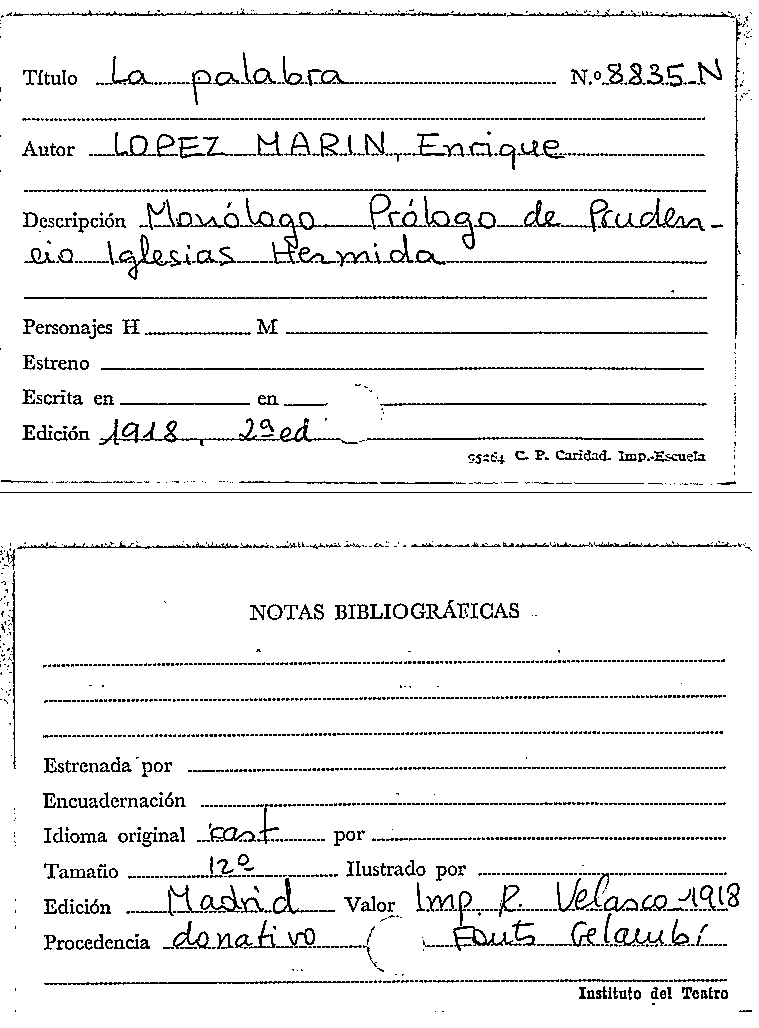 Título La palabra N.º 8835-N
Autor LOPEZ MARIN, Enrique
Descripción Monólogo. Prólogo de Pruden-
cio Iglesias Hermida
Personajes H M
Estreno
Escrita en en
Edición 1918, 2ª ed
95264 C. P. Caridad. Imp.-Escuela
NOTAS BIBLIOGRÁFICAS
Estrenada por
Encuadernación
Idioma original cast por
Tamaño 12º Ilustrado por
Edición Madrid Valor Imp. R. Velasco 1918
Procedencia donativo Fonts
Instituto del Teatro